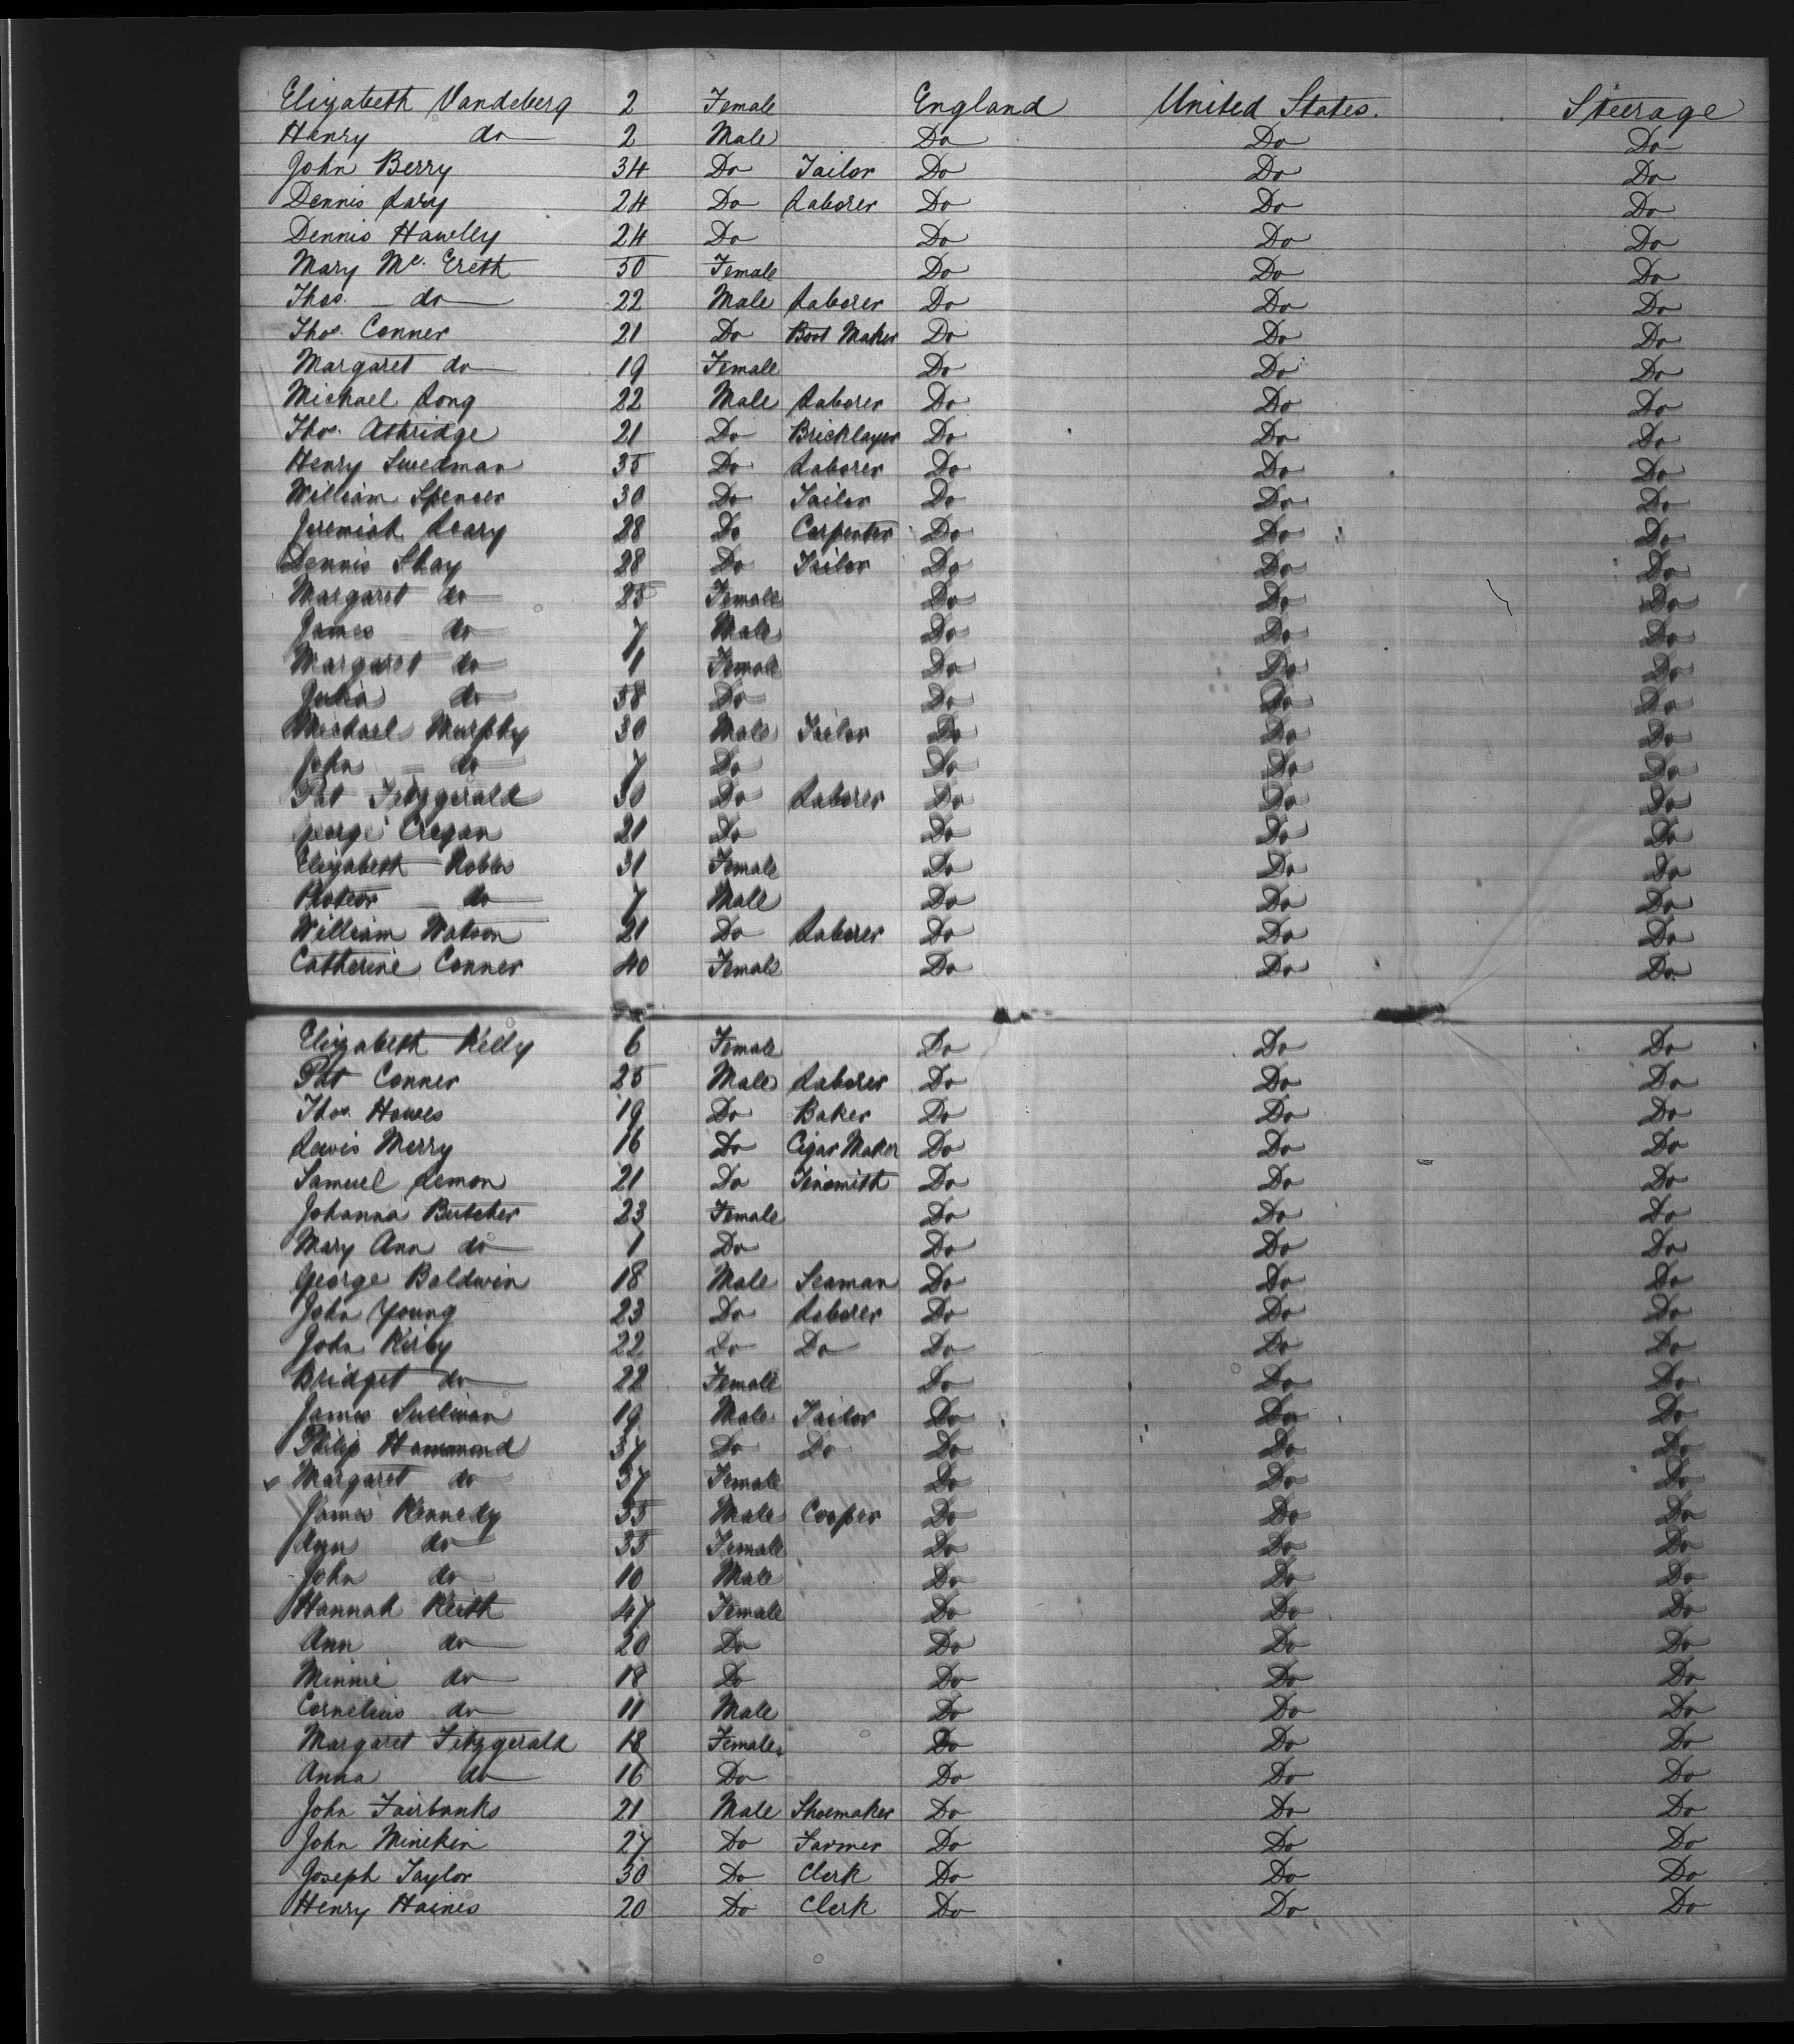 Elizabeth Vandeberg 2 Female England United States. Steerage
Henry do 2 Male Do Do Do
John Berry 34 Do Tailor Do Do Do
Dennis Lary 24 Do Laborer Do Do Do
Dennis Hawley 24 Do Do Do Do
Mary Mc. Ereth 50 Female Do Do Do
Thos. do 22 Male Laborer Do Do Do
Thos. Conner 21 Do Boot Maker Do Do Do
Margaret do 19 Female Do Do Do
Michael Long 22 Male Laborer Do Do Do
Thos. Athridge 21 Do Bricklayer Do Do Do
Henry Swedman 35 Do Laborer Do Do Do
William Spencer 30 Do Tailor Do Do Do
Jeremiah Leary 28 Do Carpenter Do Do Do
Dennis Shay 28 Do Tailor Do Do Do
Margaret do 25 Female Do Do Do
James do 7 Male Do Do Do
Margaret do 1 Female Do Do Do
Julia do 38 Do Do Do Do
Michael Murphy 30 Male Tailor Do Do Do
John do 7 Do Do Do Do
Pat Fitzgerald 30 Do Laborer Do Do Do
George Cregan 21 Do Do Do Do
Elizabeth 31 Female Do Do Do
do 7 Male Do Do Do
William Watson 21 Do Laborer Do Do Do
Catherine Conner 40 Female Do Do Do
Elizabeth Kelly 6 Female Do Do Do
Pat Conner 25 Male Laborer Do Do Do
Thos. Howes 19 Do Baker Do Do Do
Lewis Merry 16 Do Cigar Maker Do Do Do
Samuel Lemon 21 Do Tinsmith Do Do Do
Johanna Butcher 23 Female Do Do Do
Mary Ann do 1 Do Do Do Do
George Baldwin 18 Male Seaman Do Do Do
John Young 23 Do Laborer Do Do Do
John Kirby 22 Do Do Do Do Do
Bridget do 22 Female Do Do Do
James Sullivan 19 Male Tailor Do Do Do
Philip Hammond 37 Do Do Do Do Do
Margaret do 37 Female Do Do Do
James Kennedy 35 Male Cooper Do Do Do
Ann do 35 Female Do Do Do
John do 10 Male Do Do Do
Hannah Keith 47 Female Do Do Do
Ann do 20 Do Do Do Do
Minnie do 18 Do Do Do Do
Cornelius do 11 Male Do Do Do
Margaret Fitzgerald 18 Female Do Do Do
Anna do 16 Do Do Do Do
John Fairbanks 21 Male Shoemaker Do Do Do
John Minekin 27 Do Farmer Do Do Do
Joseph Taylor 30 Do Clerk Do Do Do
Henry Haines 20 Do Clerk Do Do Do